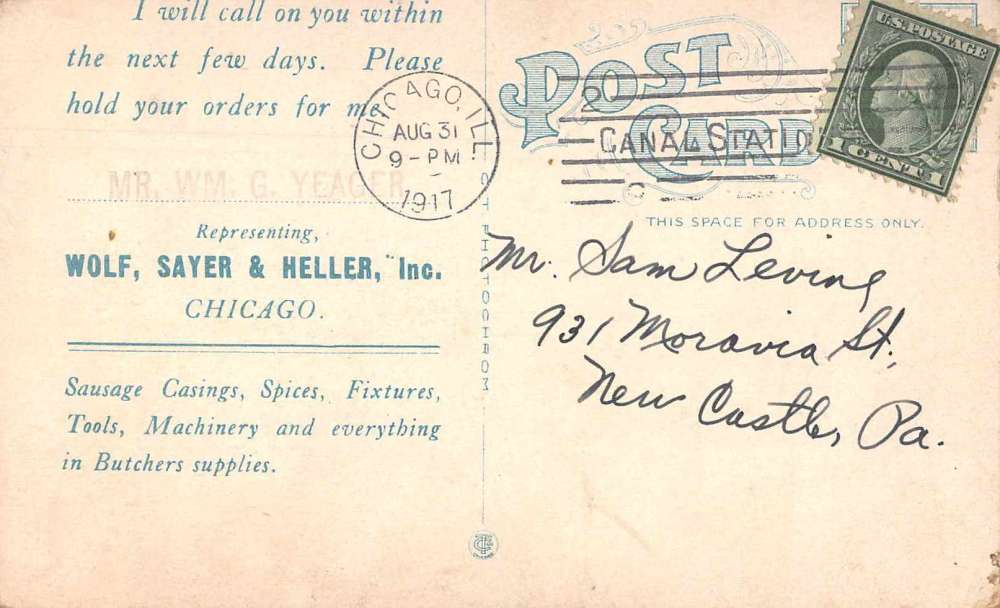 I will call on you within
the next few days. Please
hold your orders for me
MR. WM. G. YEAGER
Representing,
WOLF, SAYER & HELLER, Inc.
CHICAGO.
Sausage Casings, Spices, Fixtures,
Tools, Machinery and everything
in Butchers supplies.
CHICAGO, ILL.
AUG 31
9-PM
1917
POST
CARD
CANAL STATIO
U.S. POSTAGE
1 CENT 1
THIS SPACE FOR ADDRESS ONLY.
Mr. Sam Levine
931 Moravia St.,
New Castle, Pa.